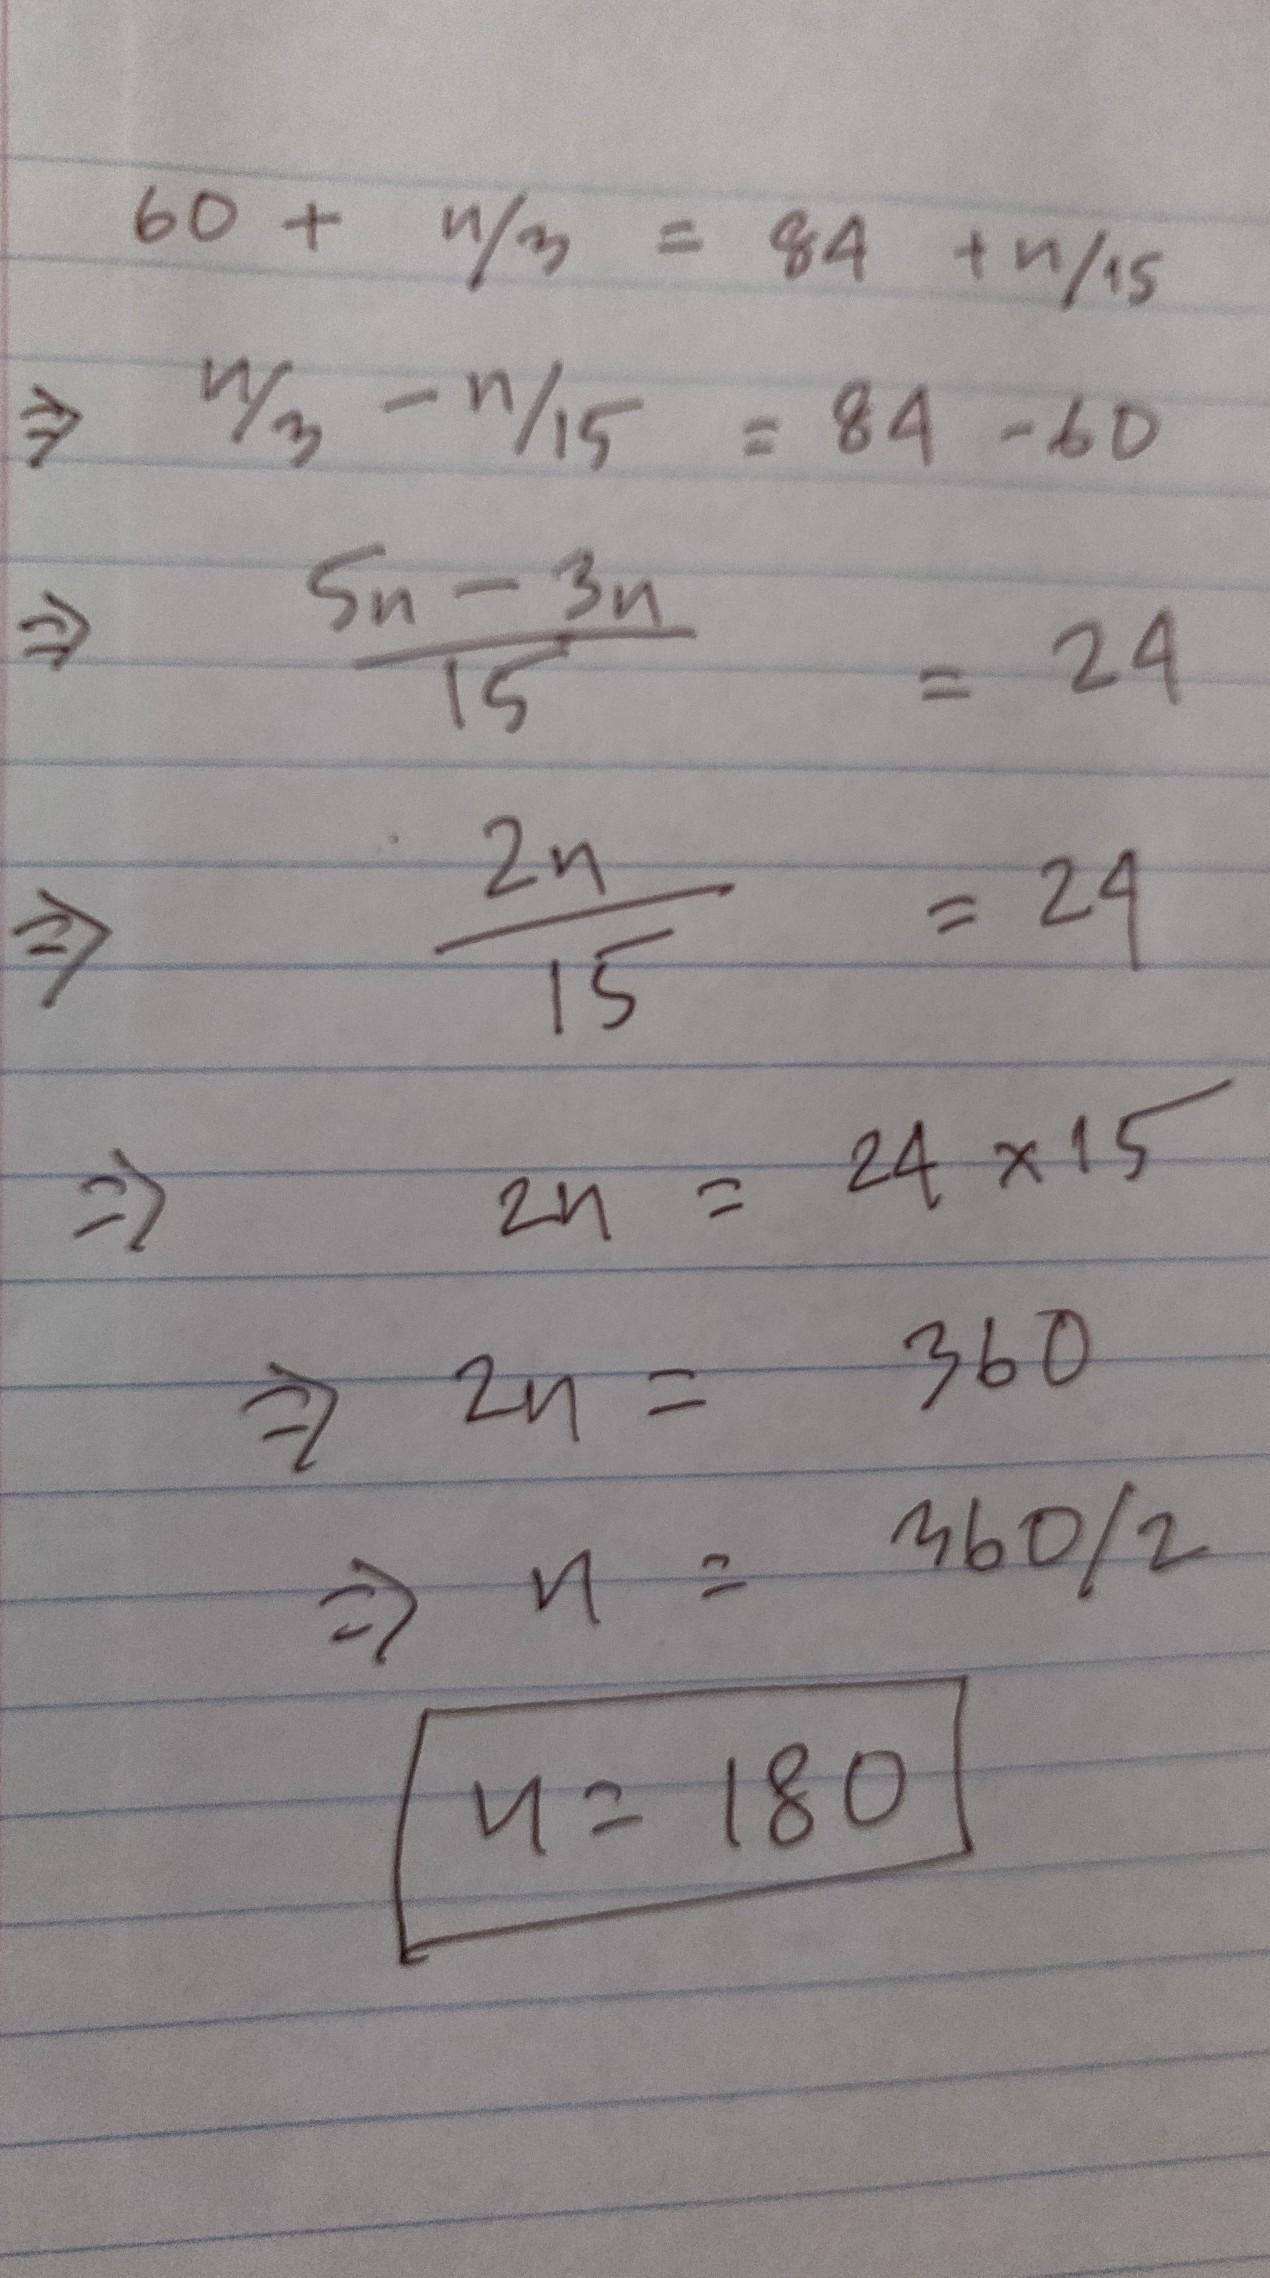 60 + n/3 = 84 + n/15
⇒ n/3 - n/15 = 84 - 60
⇒ (5n - 3n)/15 = 24
⇒ 2n/15 = 24
⇒ 2n = 24 × 15
⇒ 2n = 360
⇒ n = 360/2
n = 180